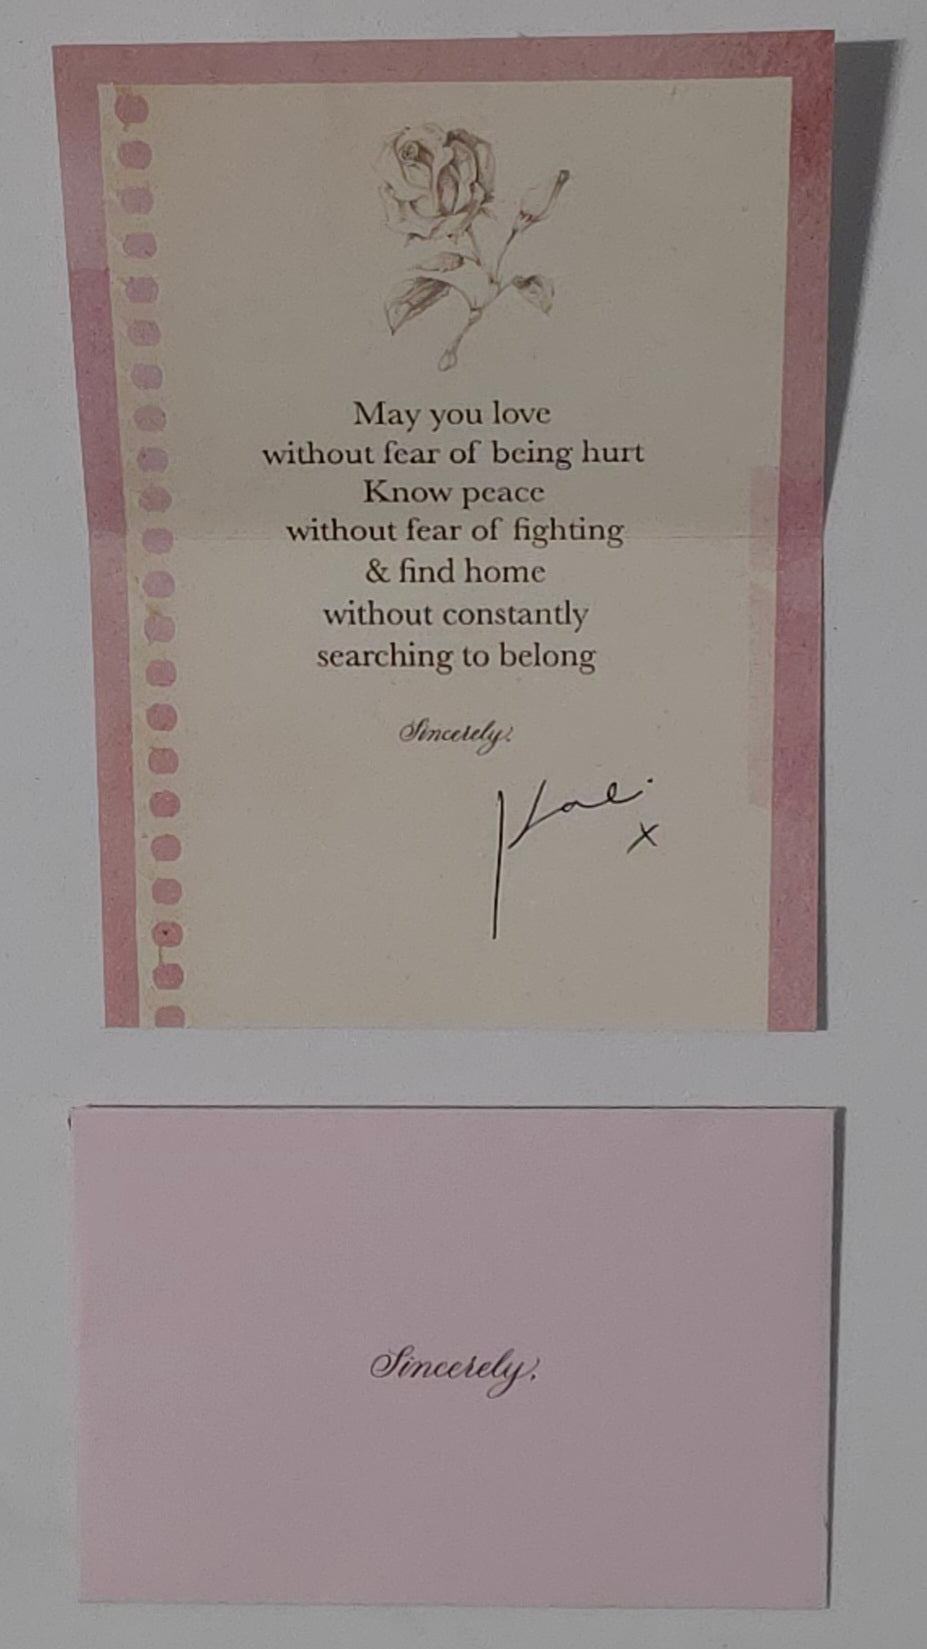 May you love
without fear of being hurt
Know peace
without fear of fighting
& find home
without constantly
searching to belong
Sincerely,
Kali
x
Sincerely,